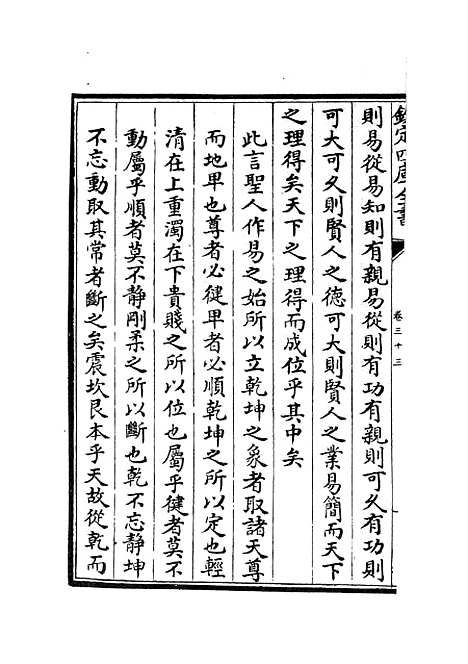 欽定四庫全書
卷三十三
則易從易知則有親易從則有功有親則可久有功則
可大可久則賢人之德可大則賢人之業易簡而天下
之理得矣天下之理得而成位乎其中矣
此言聖人作易之始所以立乾坤之象者取諸天尊
而地卑也尊者必健卑者必順乾坤之所以定也輕
清在上重濁在下貴賤之所以位也屬乎健者莫不
動屬乎順者莫不静剛柔之所以斷也乾不忘静坤
不忘動取其常者斷之矣震坎艮本乎天故從乾而